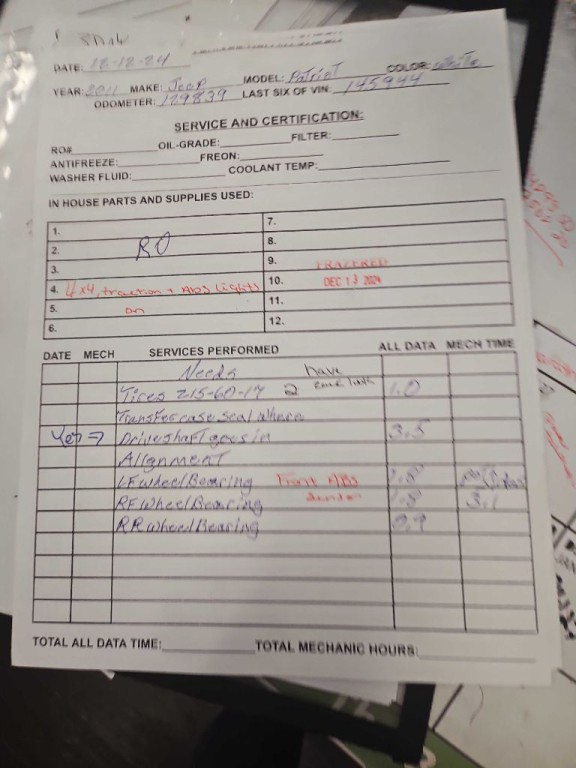 DATE: 12-12-24
YEAR: 2011 MAKE: Jeep MODEL: Patriot COLOR: white
ODOMETER: 129839 LAST SIX OF VIN: 145944
SERVICE AND CERTIFICATION:
RO# OIL-GRADE: FILTER:
ANTIFREEZE: FREON:
WASHER FLUID: COOLANT TEMP:
IN HOUSE PARTS AND SUPPLIES USED:
1. 7.
2. RO 8.
3. 9. FRAZERED
4. 4x4, traction + ABS Lights 10. DEC 13 2024
5. on 11.
6. 12.
DATE MECH SERVICES PERFORMED ALL DATA MECH TIME
Needs have
Tires 215-60-17 2 1.0
Transfercase Seal where
Yes => Driveshaft goes in 3.5
Alignment
LF Wheel Bearing Front ABS 1.8
RF Wheel Bearing Sensor 1.8 3.1
RR Wheel Bearing 0.9
TOTAL ALL DATA TIME: TOTAL MECHANIC HOURS: